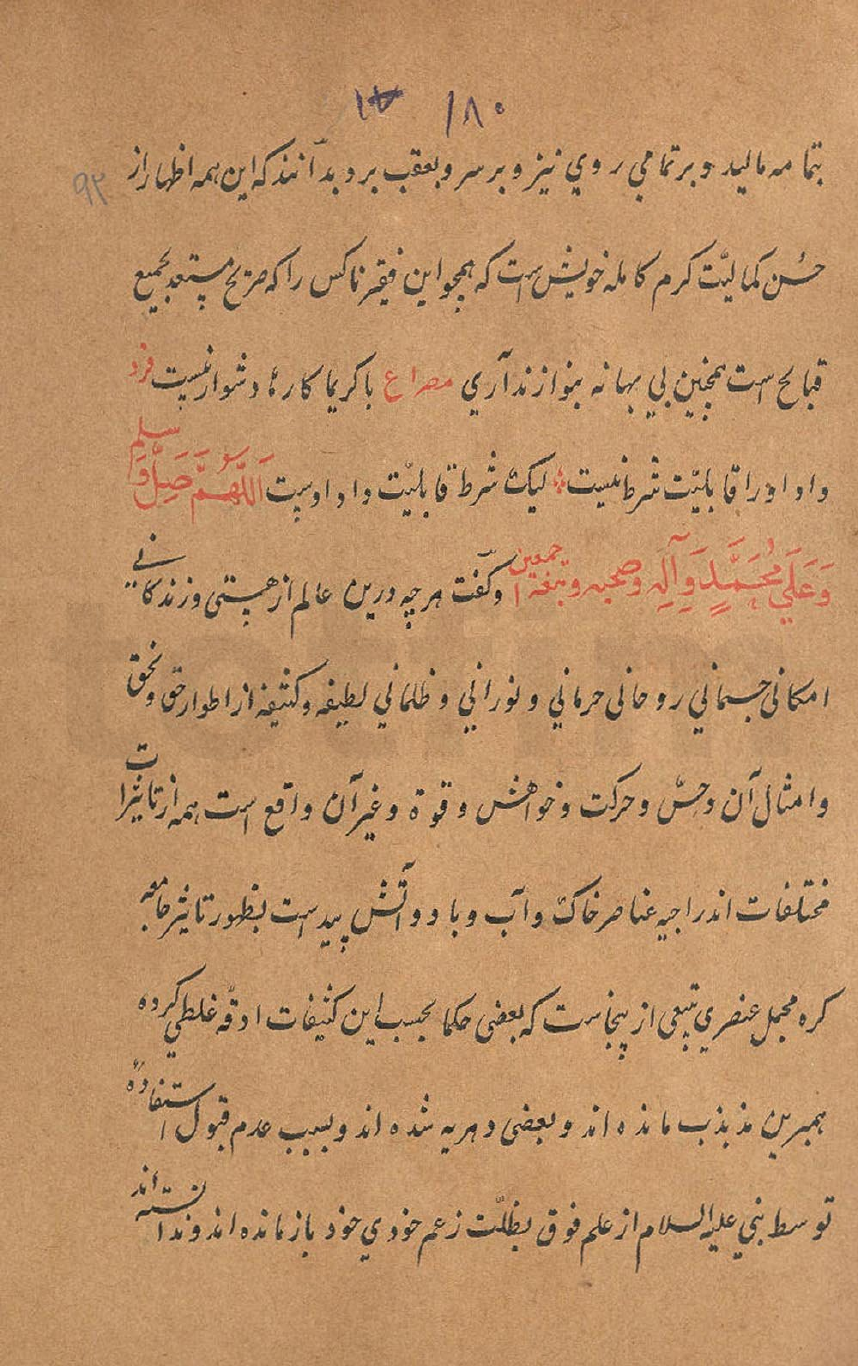 ۱۸۰
۹۲
بتمامه مالید و بر تمامي روي نیز و بر سر و بعقب برد و بدآنند که این همه اظهار از
حُسن کمالیّت کرم کامله خویش است که همچو این فقیر ناکس را که صریح مستعد بجمیع
قبایح است همچنین بي بهانه بنوازند آري مصراع با کریما کارها دشوار نیست فرد
داد او را قابلیّت شرط نیست لیک شرط قابلیّت داد اوست اَللّٰهُمَّ صَلِّ وَ سلم
وَ عَلَي مُحَمَّدٍ وَ آلِهِ و صحبه و تبعه اجمعین و گفت هر چه درین عالم از هستی و زندگاني
امکانی جسمانی روحانی حرماني و نورانی و ظلماني لطیفه و کثیفه از اطوار حق و بحق
و امثال آن و حسّ و حرکت و خواهش و قوة و غیر آن واقع است همه از تاثیرات
مختلفات اندراجیه عناصر خاک و آب و باد و آتش پیدست بظهور تاثیر جامعه
کره مجمل عنصري تبعی از ینجاست که بعضی حکما بحسب این کثیفات ادقّه غلطي کرده
همبرین مذبذب مانده اند و بعضی دهریه شده اند و بسبب عدم قبول استفاده
توسط نبي علیه السلام از علم فوق بظلّت زعم خودي خود باز مانده اند و ندانسته اند